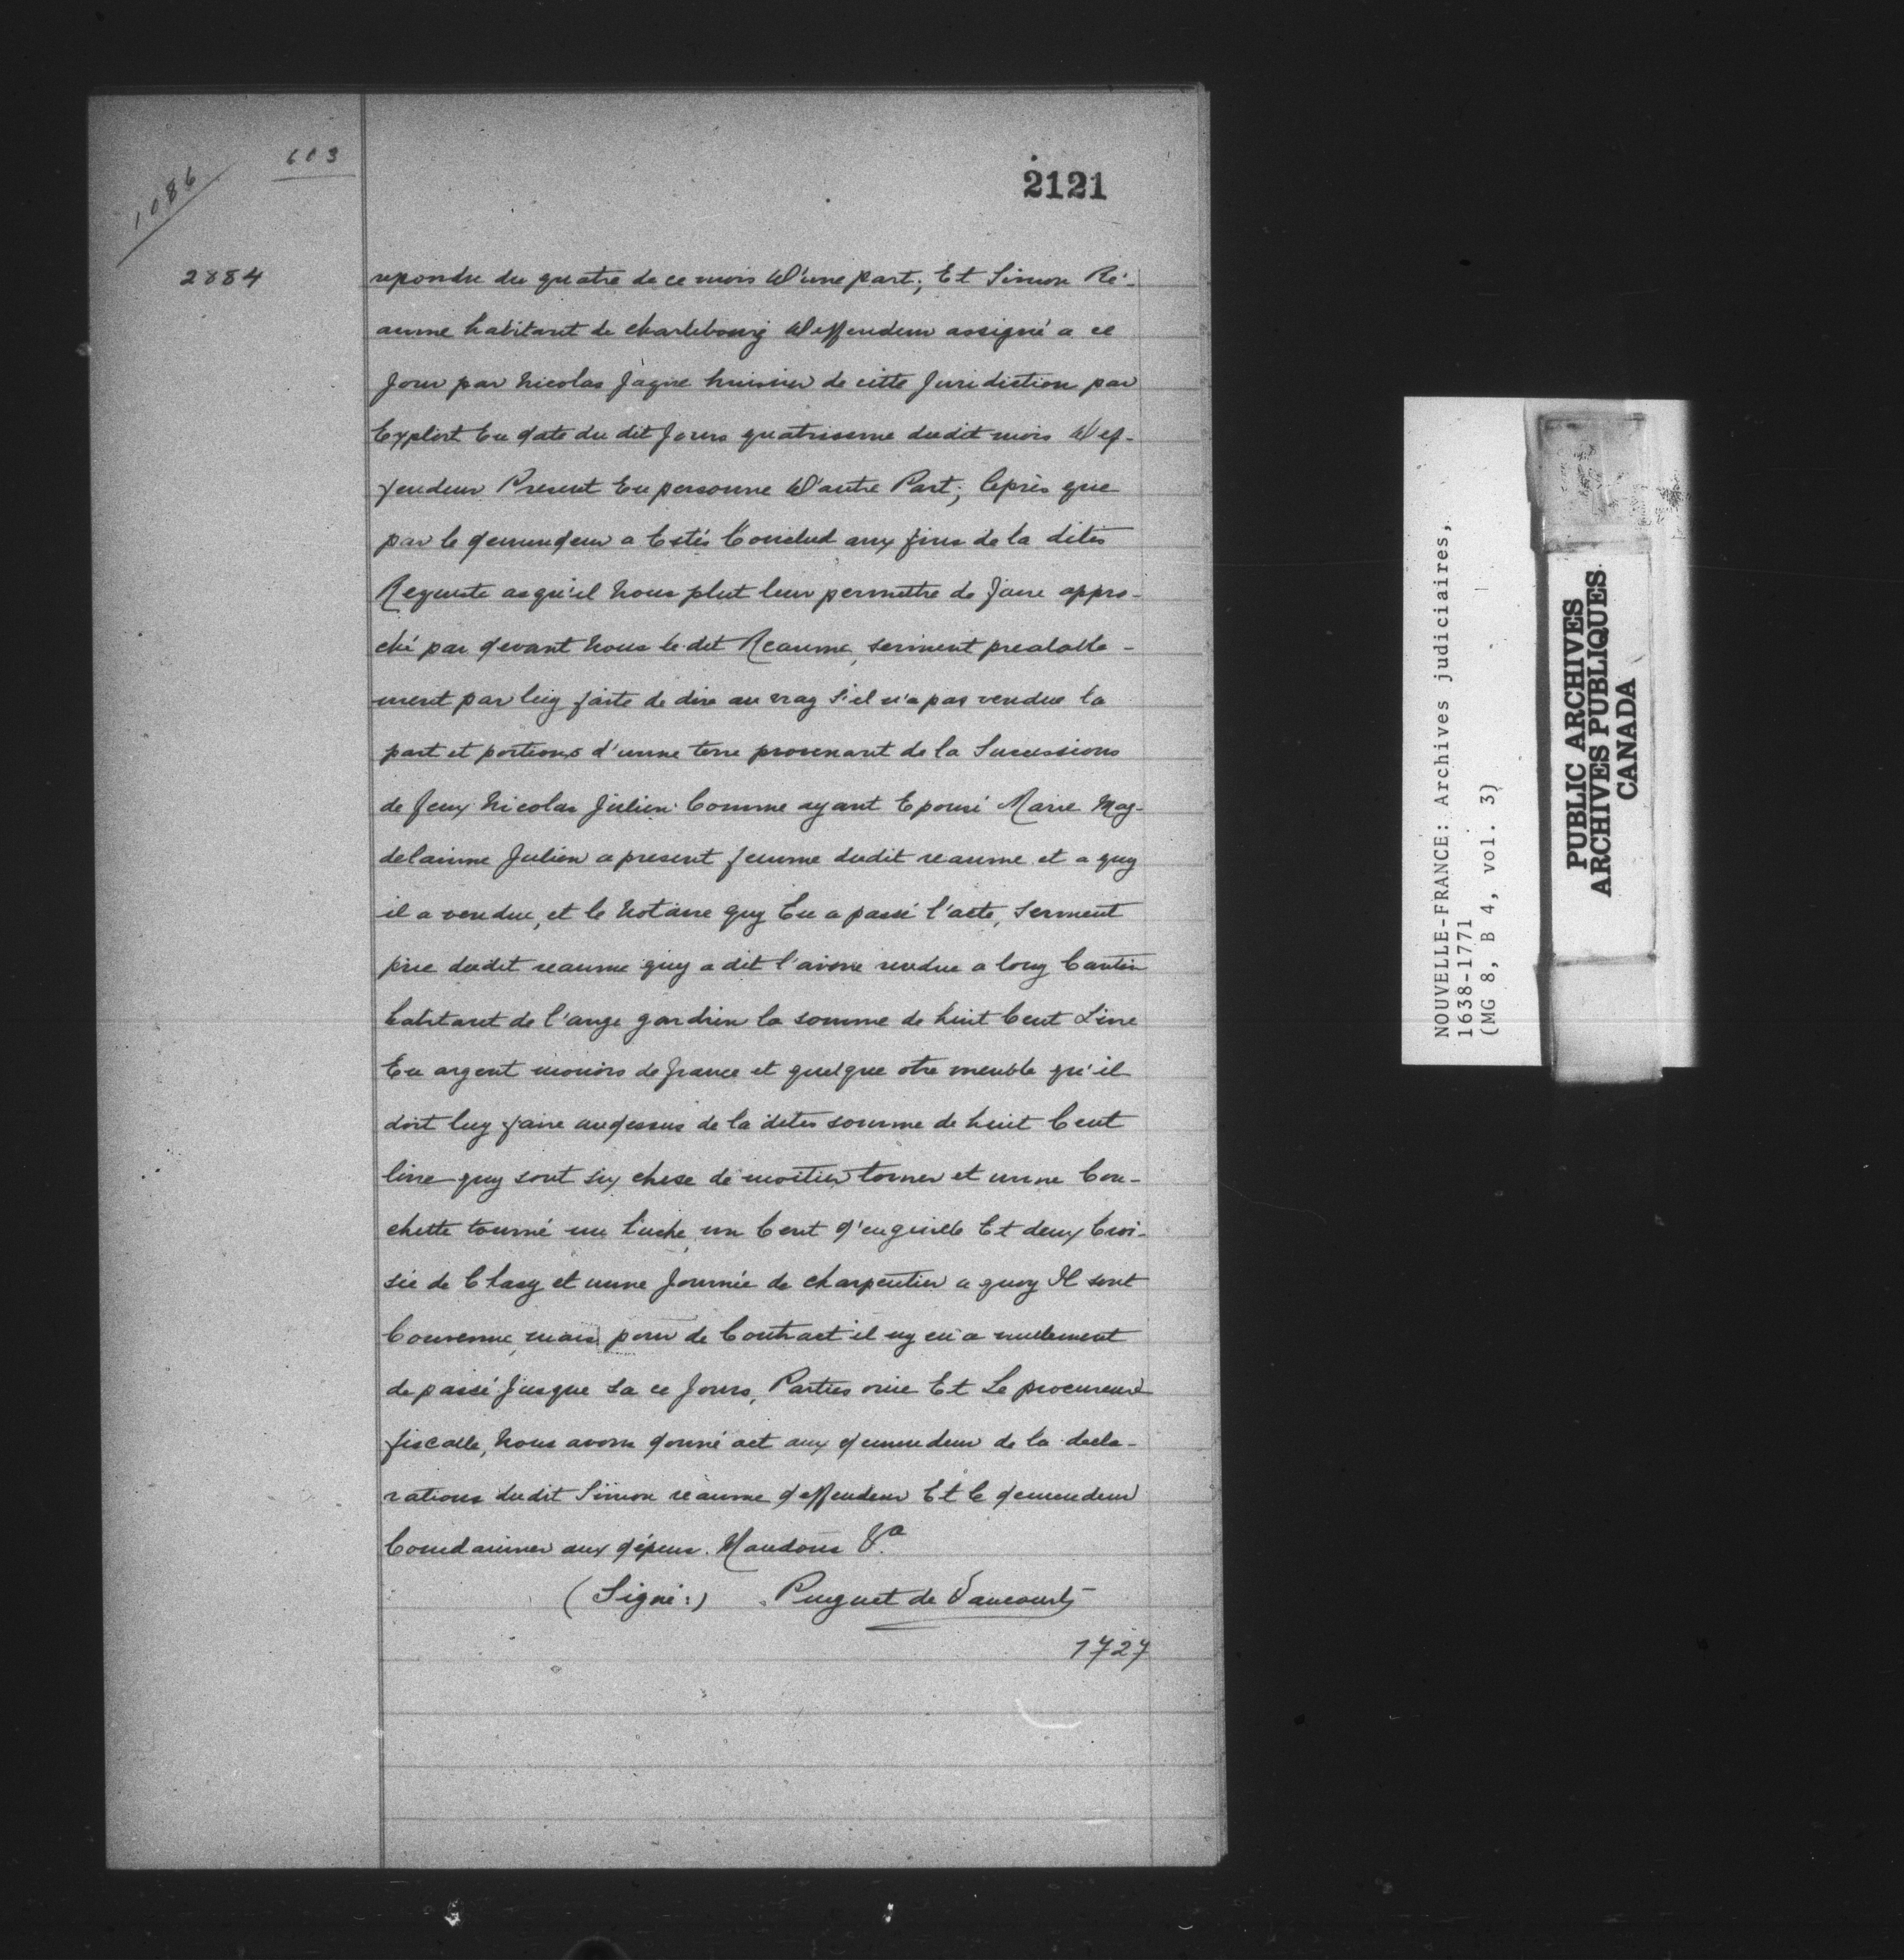 603
1086
2121
2884
repondu du quatre de ce mois D'une part; Et Simon Ré-
aume habitant de charlebourg Deffendeur assigné a ce
Jour par Nicolas Jagne huissier de cette Juridiction par
Explort En date du dit Jours quatrieme dudit mois Def-
fendeur Present En personne D'autre Part; Après que
par le demendeur a Estés Conclud aux fins de la dites
Requeste as qu'il Nous plut leur permettre de faire appro-
ché par devant Nous le dit Reaume, serment prealable-
ment par luy faite de dire au vray S'il n'a pas vendue la
part et portions d'unne terre provenant de la Sucessions
de feux Nicolas Julien Comme ayant Epousé Marie Mag-
delainne Julien a present femme dudit reaume et a quy
il a vendue, et le Notaire quy En a passé l'acte, Serment
prise dudit reaume quy a dit l'avoire vendue a louy Cantin
habitant de l'ange gardien la somme de huit Cent Livre
En argent monois de france et quelque otre meuble qu'il
doit luy faire audessus de la dites somme de huit Cent
livre quy sont six chese de moitier torner et unne Cou-
chette tourné une huche, un Cent d'enguille Et deux Croi-
sée de Chasy et unne Journée de charpentier a quoy Il sont
Convenue, mais pour de Contract il ny en a nullement
de passé Jusque sa ce Jours, Parties ouie Et Le procureur
fiscalle, Nous avons donné act aux demendeur de la decla-
rations dudit Simon reaume deffendeur Et le demendeur
Condainner aux dépens. Mandons &a
(Signé:) Puguet de Vaucourt
1727
NOUVELLE-FRANCE: Archives judiciaires,
1638-1771
(MG 8, B 4, vol. 3)
PUBLIC ARCHIVES
ARCHIVES PUBLIQUES
CANADA